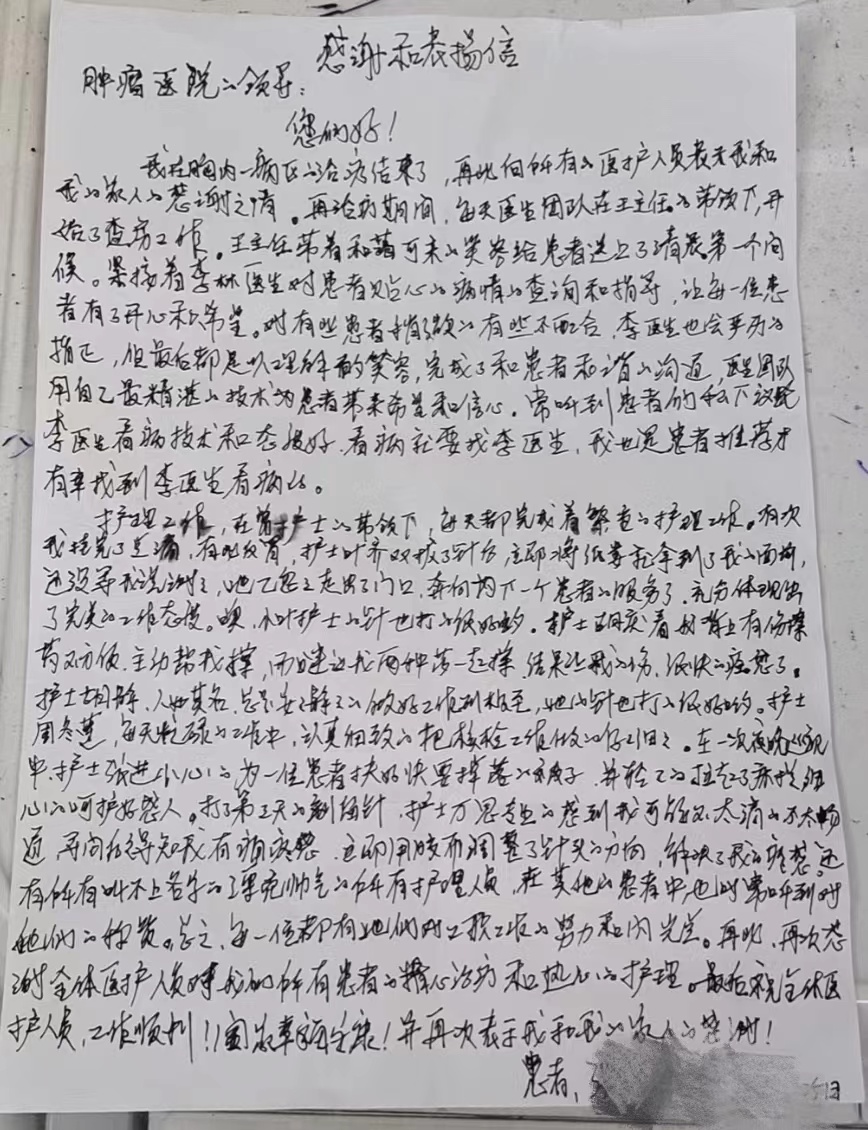 感谢和表扬信
肿瘤医院的领导：
您们好！
我在胸内一病区的治疗结束了，再此向所有的医护人员表示我和
我的家人的感谢之情。再治疗期间，每天医生团队在王主任的带领下，开
始了查房工作。王主任带着和蔼可亲的笑容给患者送上了清晨第一个问
候。紧接着李林医生对患者贴心的病情的查询和指导，让每一位患
者有了开心和希望。对有些患者情绪的有些不配合，李医生也会严厉的
指正，但最后都是以理解的笑容，完成了和患者和谐的沟通，医生团队
用自己最精湛的技术为患者带来希望和信心。常听到患者们私下议论
李医生看病技术和态度好，看病就要找李医生，我也是患者推荐才
有幸找到李医生看病的。
护理工作，在护士的带领下，每天都完成着繁重的护理工作。有次
我挂完了点滴，有呕反胃，护士叶齐双拔了针后，立即将纸袋就拿到了我的面前，
还没等我说谢谢，她已急急走出了门口，奔向为下一个患者的服务了，充分体现出
了完美的工作态度。噢，小叶护士的针也打的很好的。护士看我背上有伤擦
药不方便，主动帮我擦，而且还我两种药一起擦，结果让我的伤，很快的痊愈了。
护士胡静，人如其名，总是安安静静的做好工作到极至，她的针也打的很好的。护士
周冬莲，每天忙碌的工作中，认真细致的把核检工作做的仔仔细细。在一次夜晚巡视
中，护士张进小心的为一位患者扶好快要掉落的被子，并轻轻的拉起了床挡，细
心的呵护好感人。打了第二天的留置针，护士万思专业的感到我可能不太滴的不太畅
通，寻问后得知我有痛感，立即用胶布调整了针头的方向，解决了我的疼感。还
有所有叫不上名字的漂亮帅气的所有护理人员，在其他的患者中，也时常听到对
她们的称赞。总之，每一位都有她们对工职工作的努力和闪光点。再此，再次感
谢全体医护人员对我们所有患者的精心治疗和热心的护理。最后祝全体医
护人员，工作顺利！！阖家幸福安康！并再次表示我和我的家人的感谢！
患者，